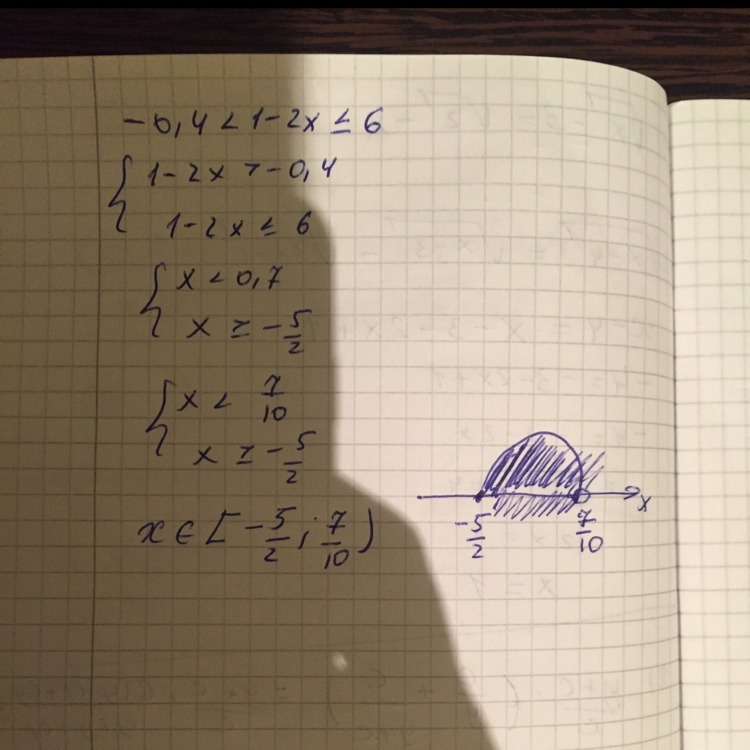 -0,4 < 1-2x ≤ 6
{ 1-2x > -0,4
1-2x ≤ 6
{ x < 0,7
x ≥ -5/2
{ x < 7/10
x ≥ -5/2
x ∈ [-5/2 ; 7/10)
-5/2 7/10 x